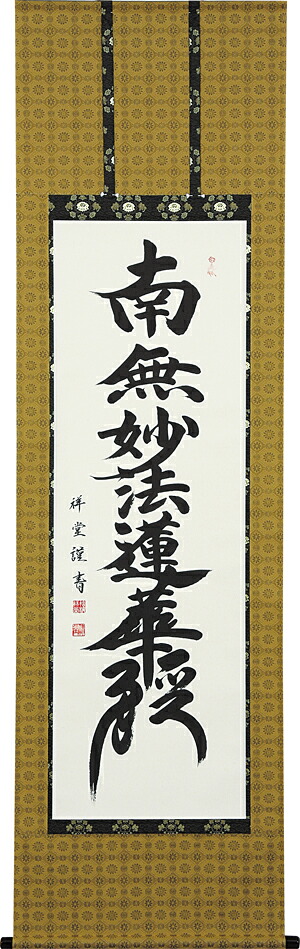 南無妙法蓮華経
祥堂謹書